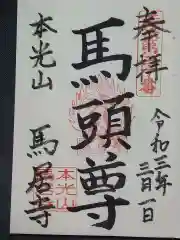 奉拝
令和三年
三月一日
馬頭尊
本光山
馬居寺
本光山